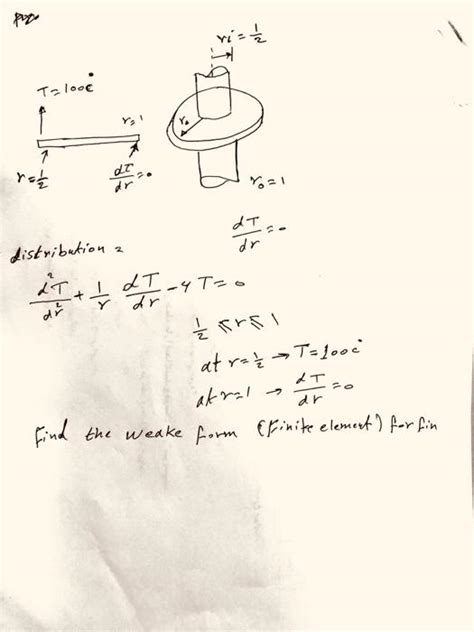 ri = 1/2
T = 100c°
r=1
ro
r=1/2
dT/dr = 0
ro = 1
dT/dr = 0
distribution =
d²T/dr² + 1/r dT/dr - 4T = 0
1/2 ≤ r ≤ 1
at r = 1/2 → T = 100c°
at r=1 → dT/dr = 0
Find the weake form (Finite element) for fin